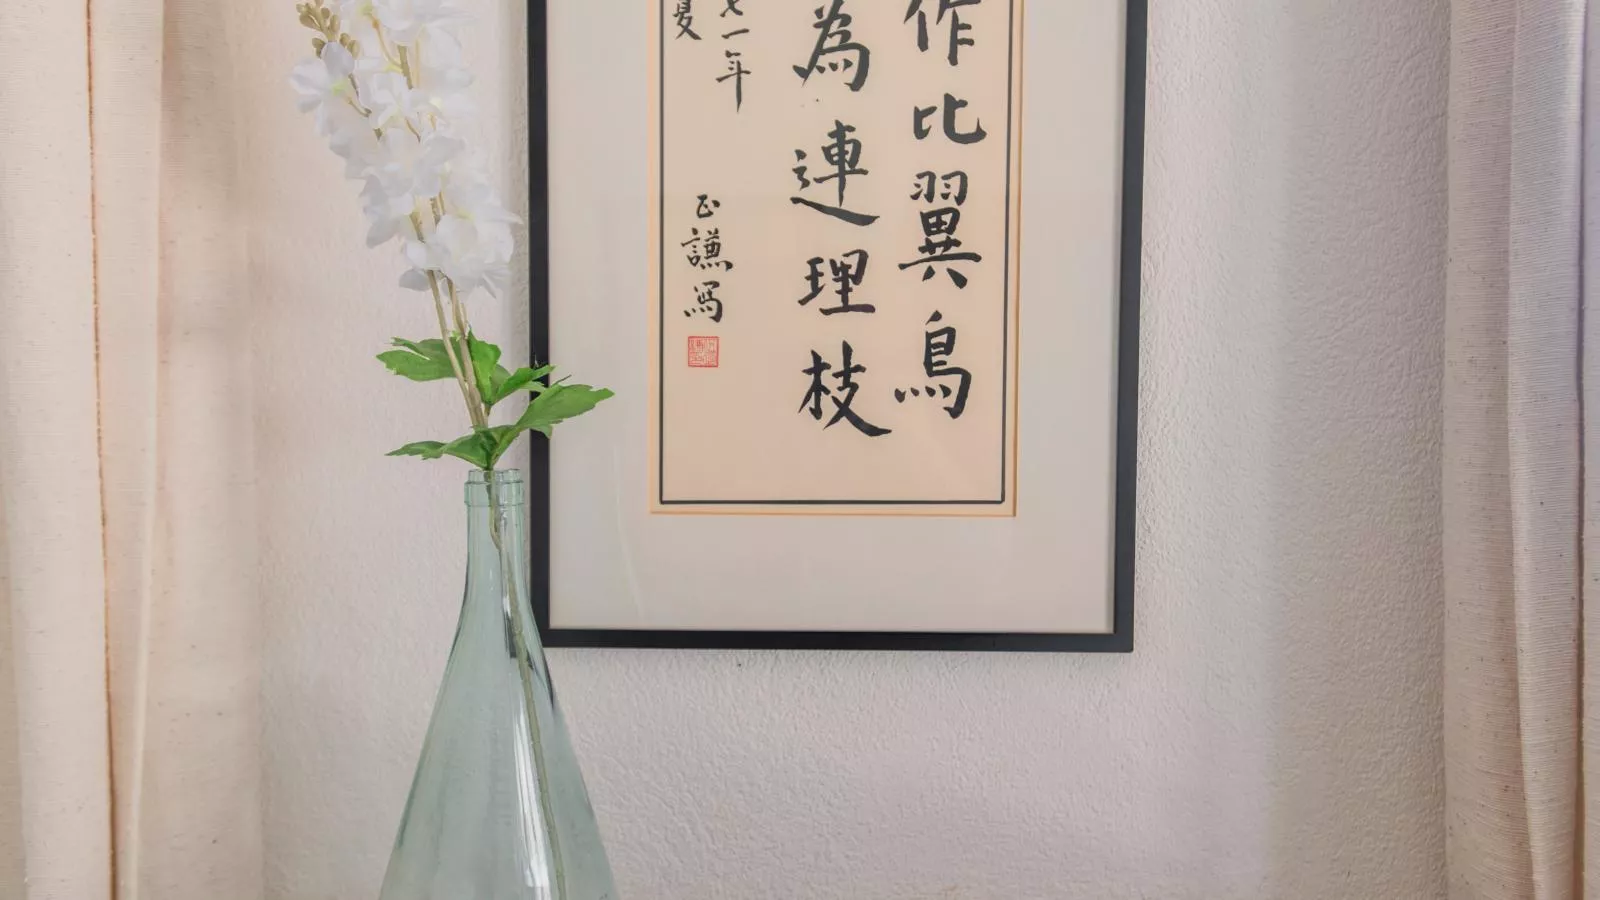 作比翼鳥
為連理枝
七一年
夏
正謙写